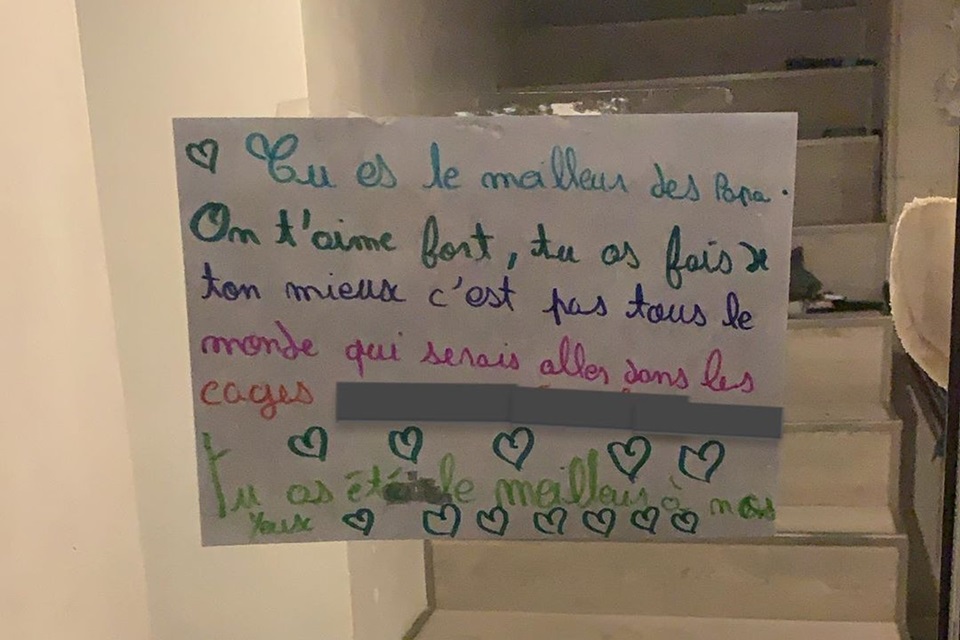 Tu es le meilleur des Papa.
On t'aime fort, tu as fais
ton mieux c'est pas tous le
monde qui serais aller dans les
cages
Tu as été le meilleur à nos
yeux